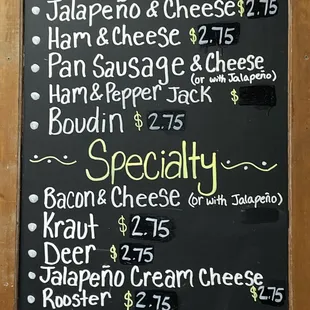 • Jalapeño & Cheese $2.75
• Ham & Cheese $2.75
• Pan Sausage & Cheese
(or with Jalapeño)
• Ham & Pepper Jack $
• Boudin $2.75
Specialty
• Bacon & Cheese (or with Jalapeño)
• Kraut $2.75
• Deer $2.75
• Jalapeño Cream Cheese
$2.75
• Rooster $2.75